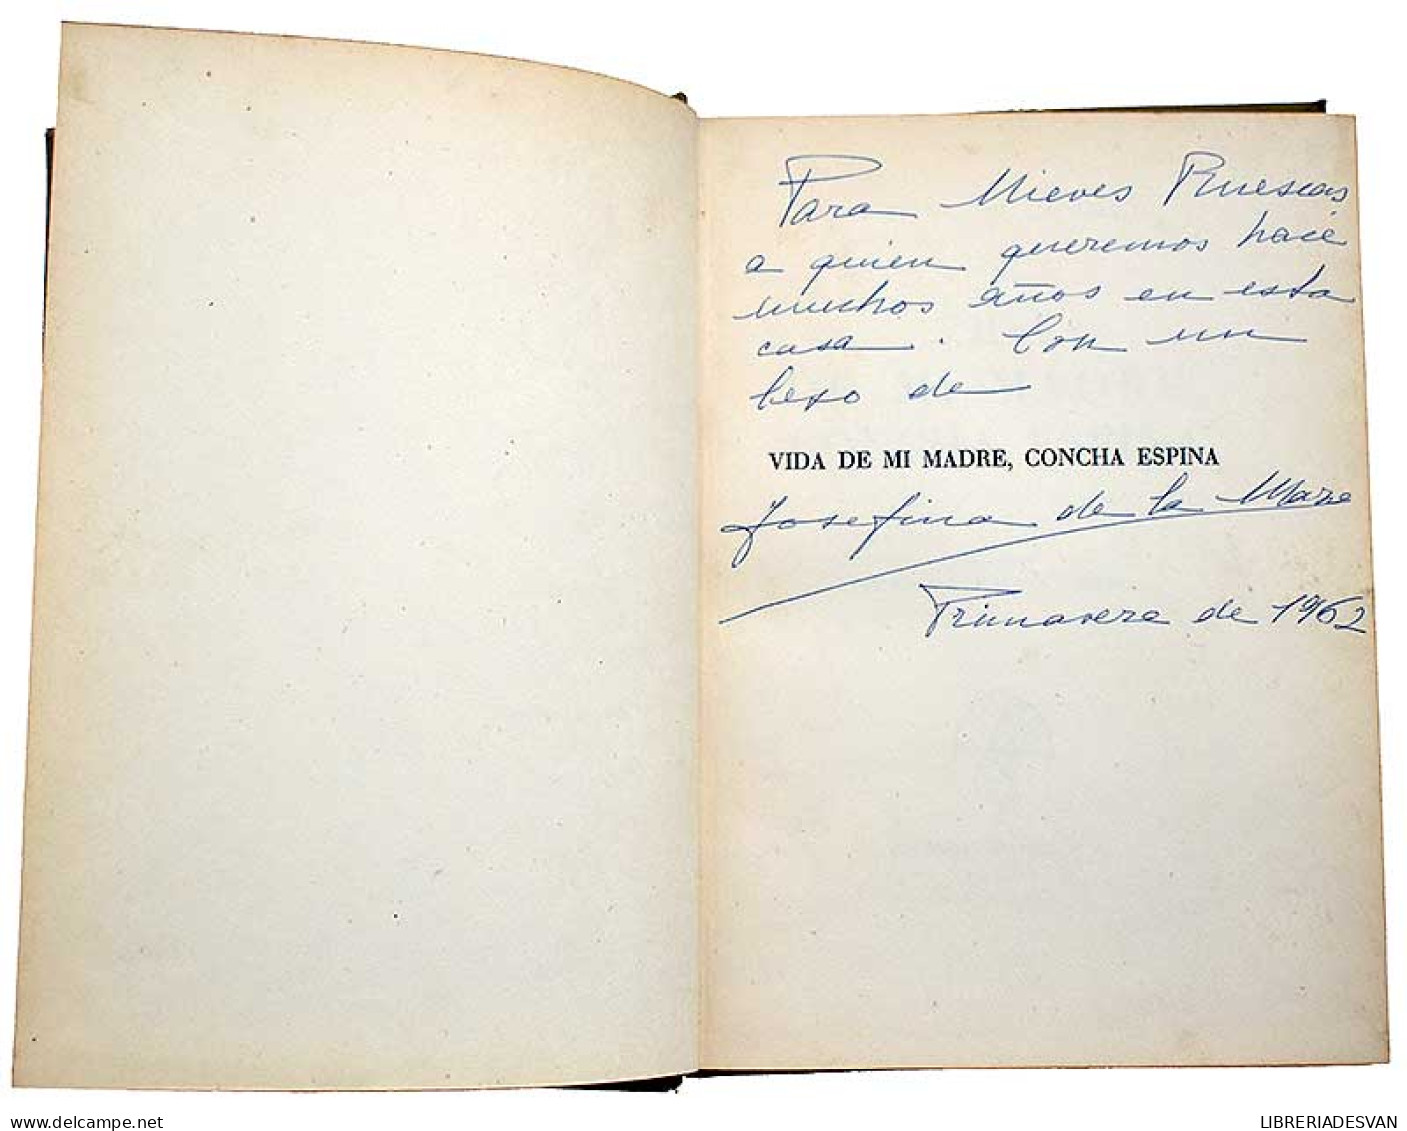 Para Nieves Ruescas
a quien queremos hace
muchos años en esta
casa. Con un
beso de
VIDA DE MI MADRE, CONCHA ESPINA
Josefina de la Maza
Primavera de 1962
www.delcampe.net
LIBRERIADESVAN